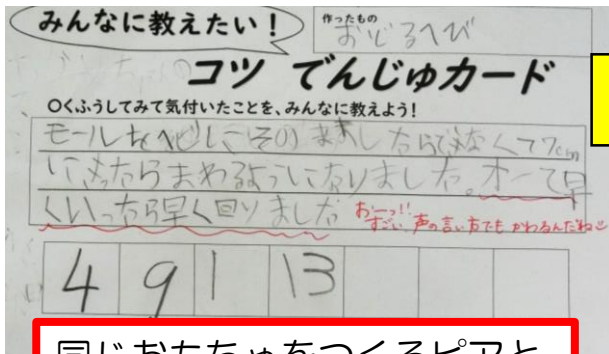 みんなに教えたい！
作ったもの
おどるへび
コツ でんじゅカード
○くふうしてみて気付いたことを、みんなに教えよう！
モールをヘビにそのまましたら
にきったらまわるようになりました。オーて早
くいったら早く回りました
おーっ!!
すごい 声の言い方でも かわるんだね
4 9 1 13
同じおもちゃをつくるピアと